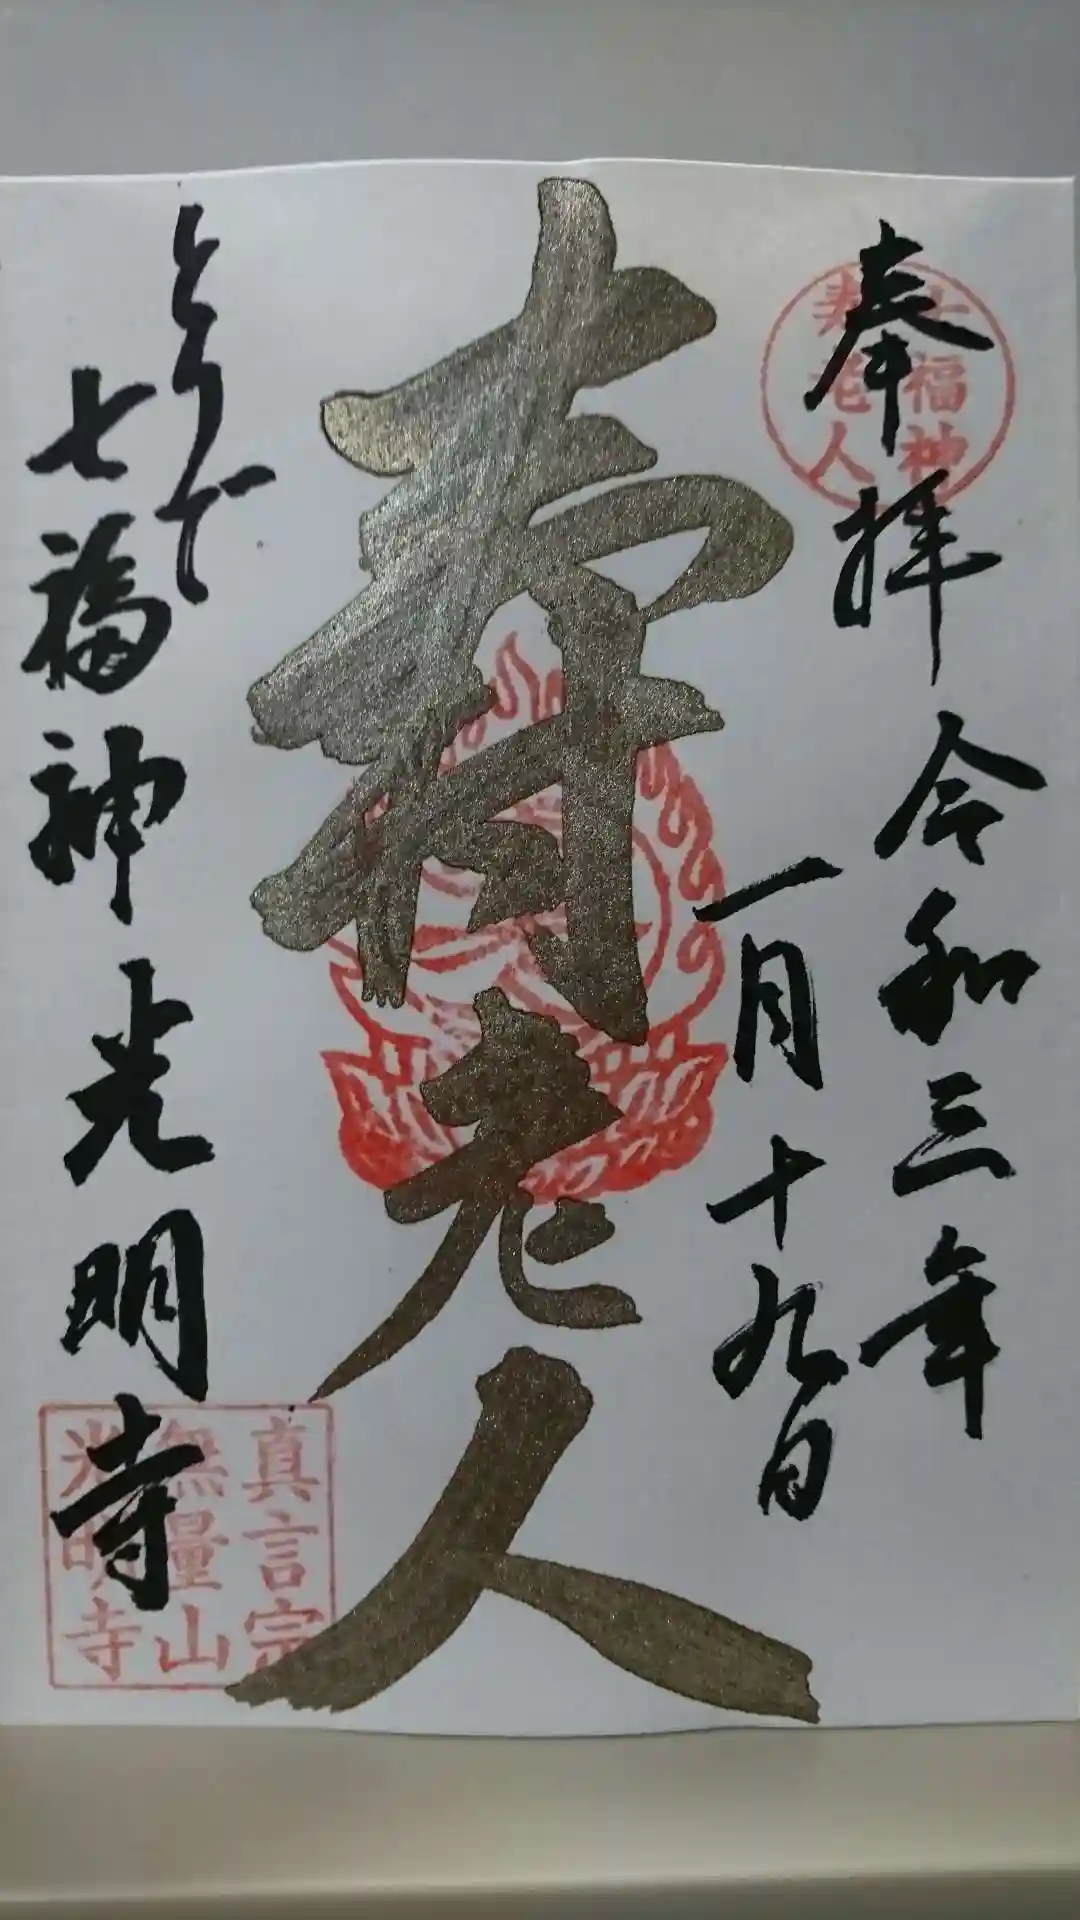 奉拝
令和三年
一月十九日
七福神
寿老人
寿老人
とりで
七福神光明寺
真言宗
無量山
光明寺